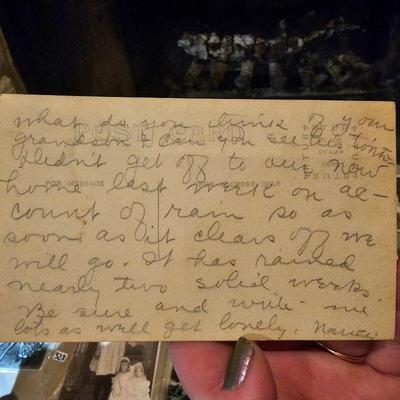 what do you think of your
grandson? can you see his
POST CARD
Didn't get off to our new
home last week on ac-
count of rain so as
soon as it clears off we
will go. It has rained
nearly two solid weeks.
Be sure and write me
lots as we'll get lonely.